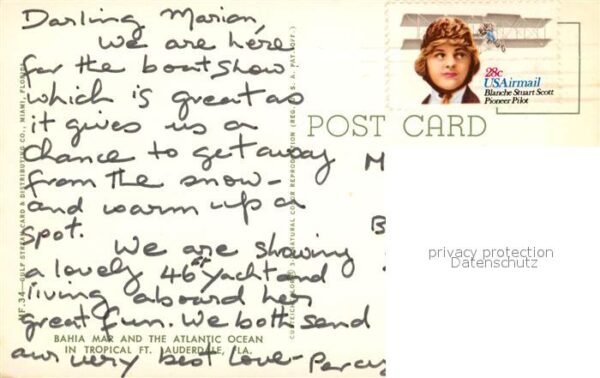 Darling Marion,
We are here
for the boatshow
which is great as
it gives us a
chance to get away
from the snow-
and warm up a
spot.
We are showing
a lovely 46' yacht and
living aboard her
great fun. We both send
our very best love - Percy
28c
USAirmail
Blanche Stuart Scott
Pioneer Pilot
POST CARD
M
B
privacy protection
Datenschutz
MF.34—GULF STREAM CARD & DISTRIBUTING CO., MIAMI, FLORIDA
NATURAL COLOR REPRODUCTION (REG. U.S.A. PAT. OFF.)
BAHIA MAR AND THE ATLANTIC OCEAN
IN TROPICAL FT. LAUDERDALE, FLA.